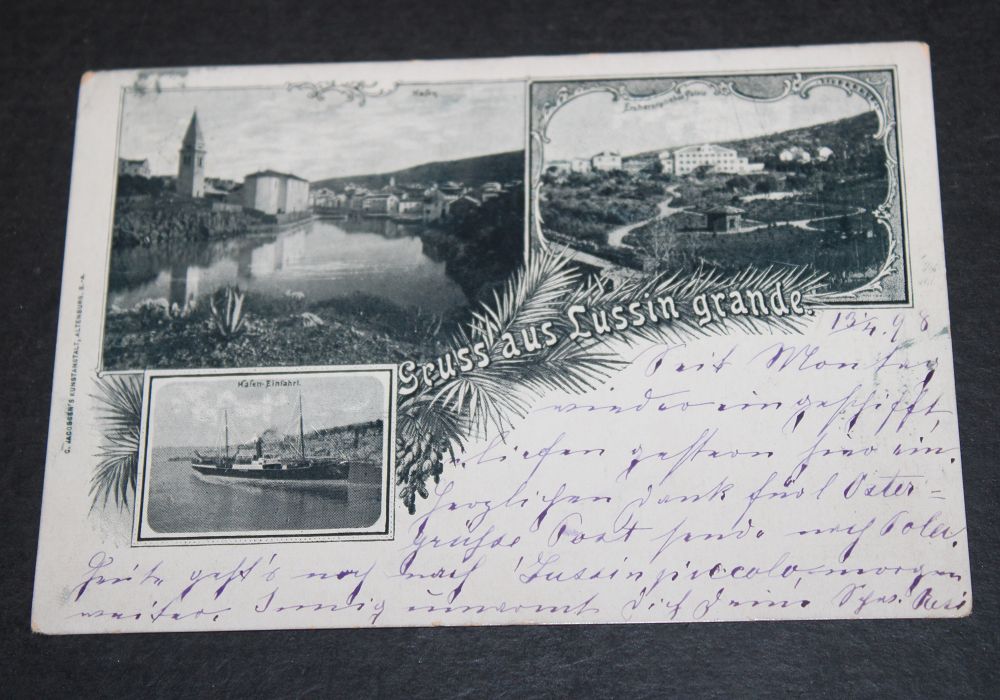 Hafen
Erzherzogliche
G. JACOBSEN'S KUNSTANSTALT, ALTENBURG, S.-A.
Gruss aus Lussin grande.
Hafen-Einfahrt.
13/4. 98
Seit Montag
wieder eingeschifft,
liefen gestern hier ein.
Herzlichen Dank für l Oster-
grüße Post sende nach Pola.
Heute geht's noch nach Lussinpiccolo, morgen
weiter. Innig umarmt Dich Deine Resi